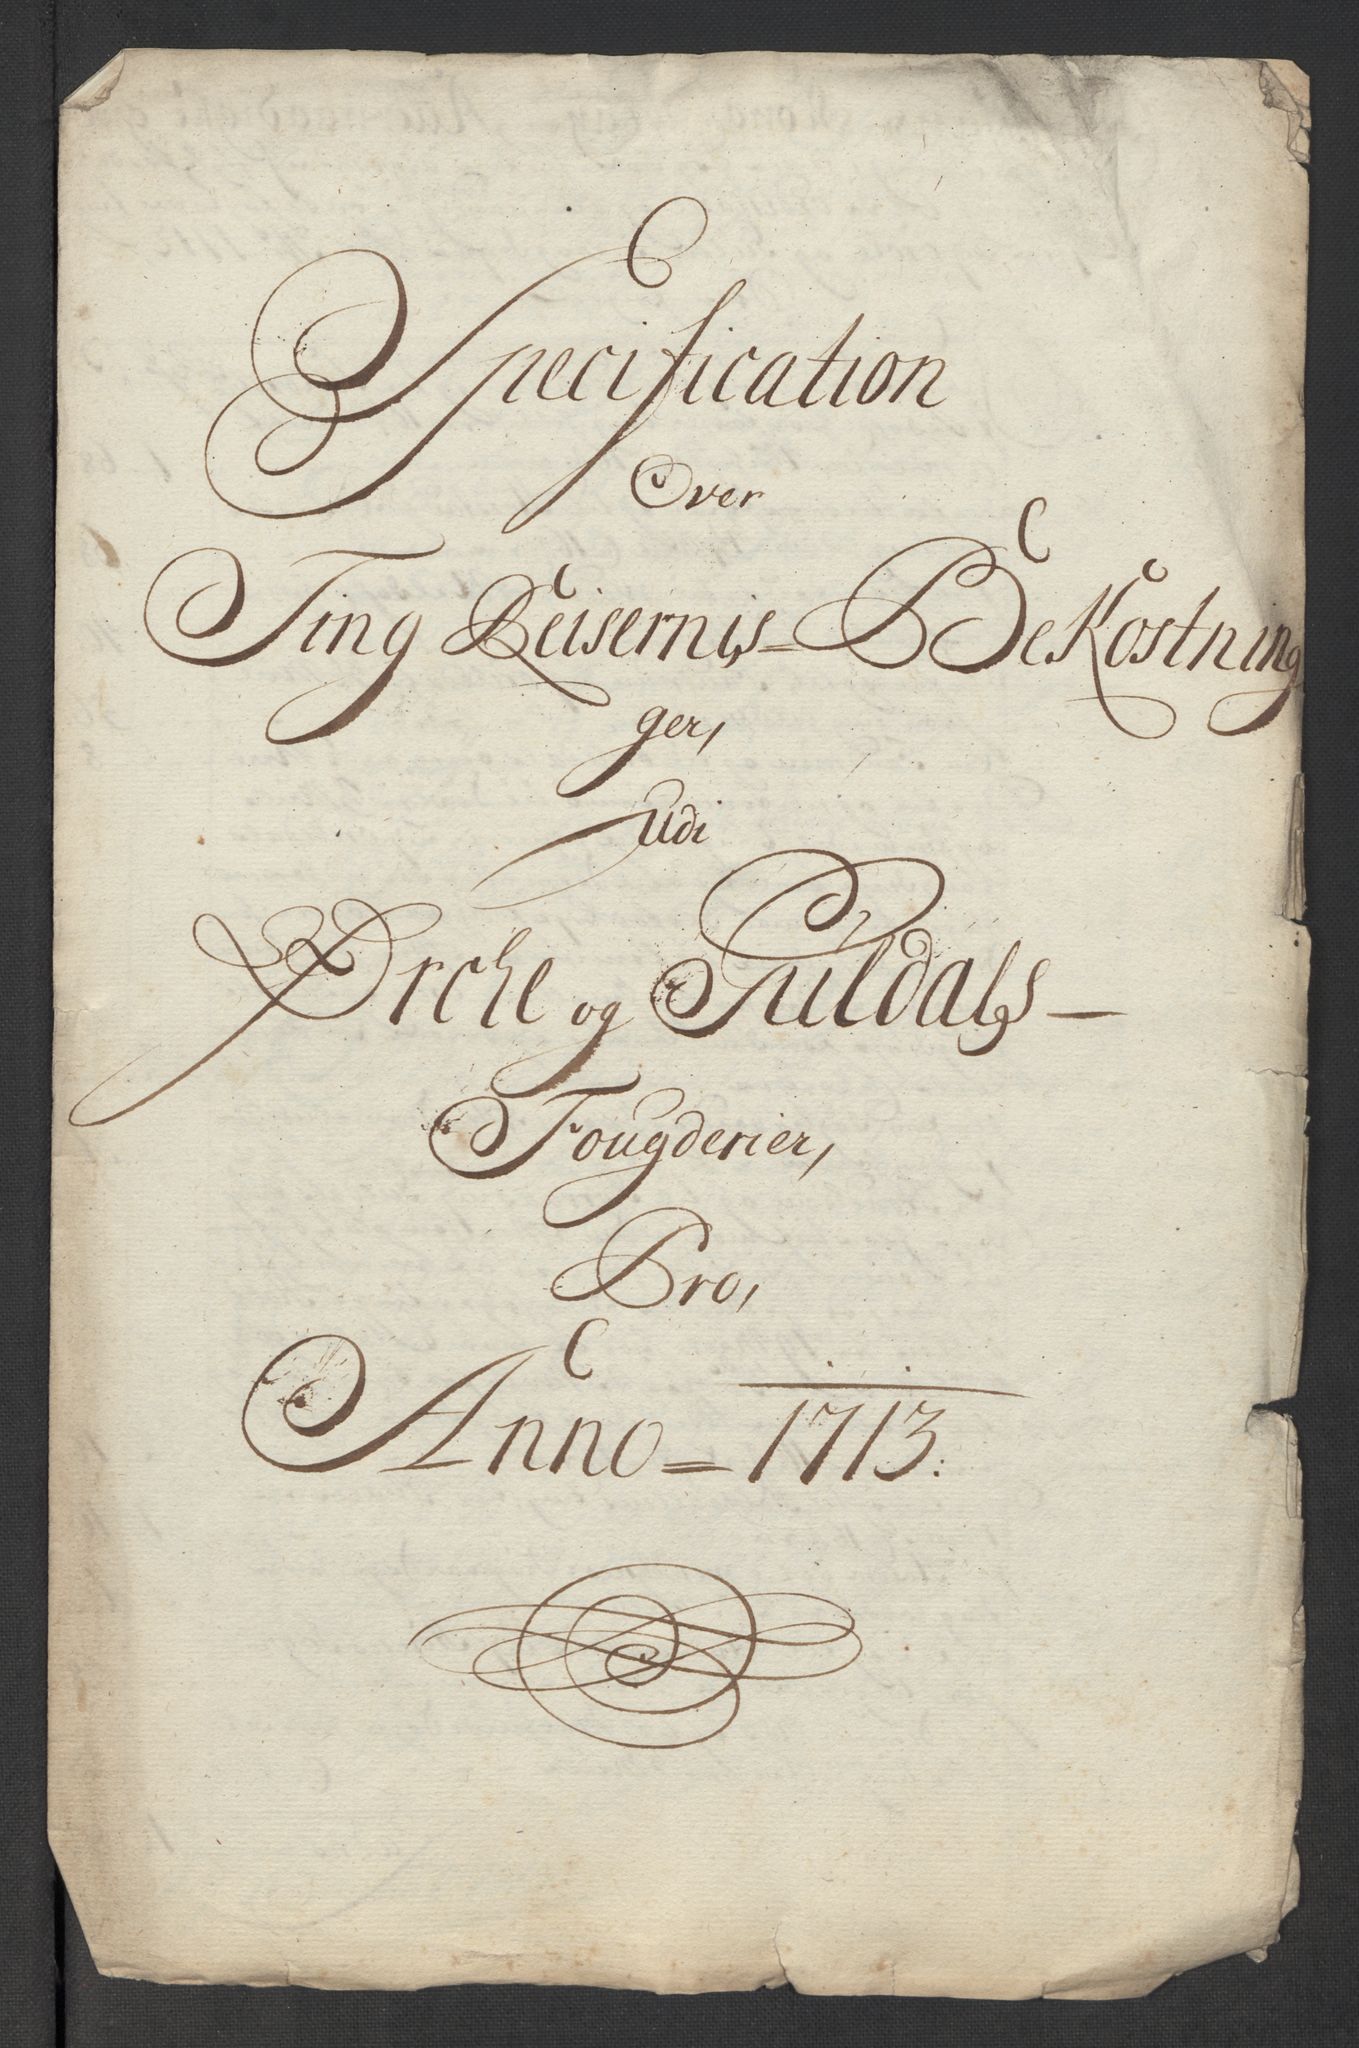 Specification
Over
Ting Reisernis= Bekostning
ger,
udi
Ørche og Guldals-
Fougderier,
Pro,
Anno = 1713.